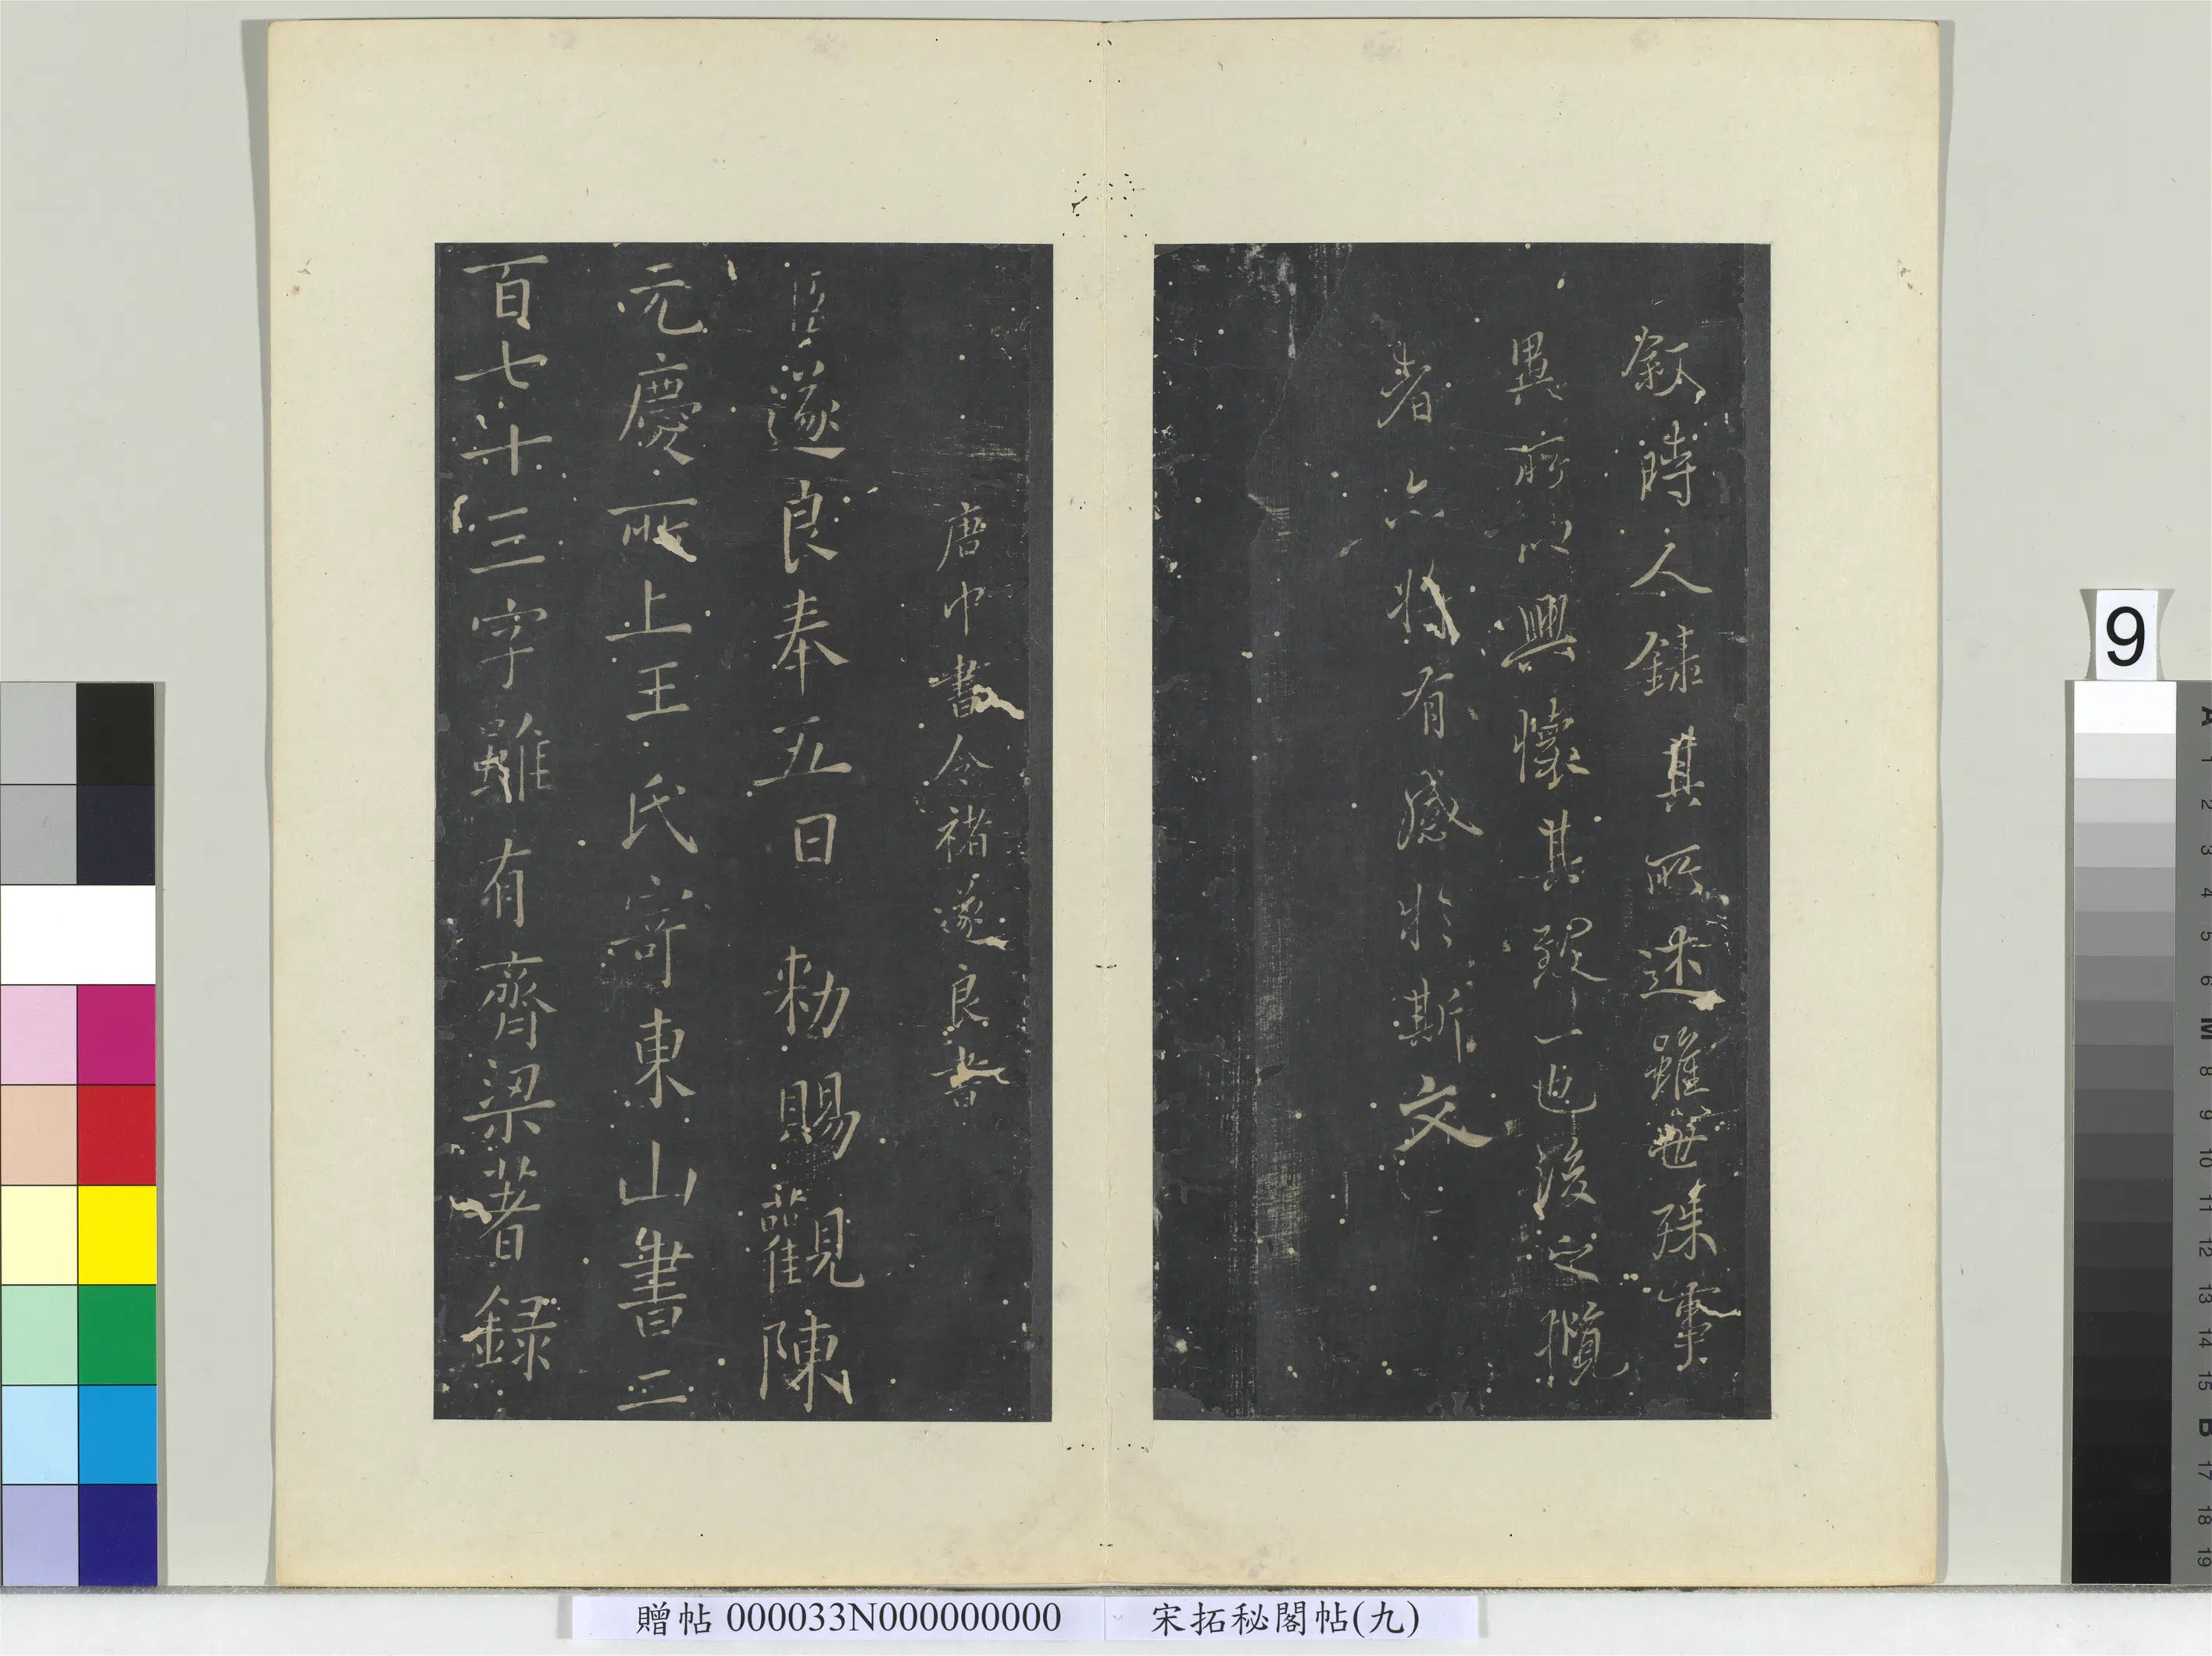 叙時人録其所述雖世殊事
異所以興懷其致一也後之攬
者亦将有感於斯文
唐中書令褚遂良書
臣遂良奉五日 勑賜觀陳
元慶所上王氏寄東山書二
百七十三字雖有齊梁著録
9
贈帖 000033N000000000 宋拓秘閣帖(九)
A 1 2 3 4 5 6 M 8 9 10 11 12 13 14 15 B 17 18 19